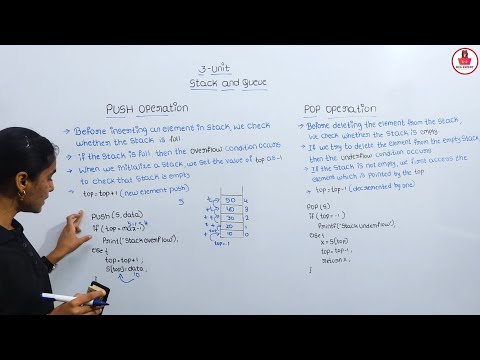 3-Unit
Stack and Queue
PUSH Operation
→ Before inserting an element in stack, we check whether the stack is full
→ if the stack is full then the overflow condition occurs
→ When we initialize a stack, we set the value of top as -1 to check that stack is empty
→ top = top+1 (new element push)
5
PUSH (S, data)
5-1 = 4
if (top = max-1)
Print ("Stack overflow");
else {
top = top+1;
S(top) = data;
10
}
50 4
40 3
30 2
20 1
10 0
top = -1
POP Operation
→ Before deleting the element from the stack, we check whether the stack is empty
→ If we try to delete the element from the empty stack then the underflow condition occurs
→ If the stack is not empty, we first access the element which is pointed by the top
→ top = top-1 (decremented by one)
POP (S)
if (top = -1)
Printf ("Stack underflow");
else {
x = S(top)
top = top-1;
return x;
}